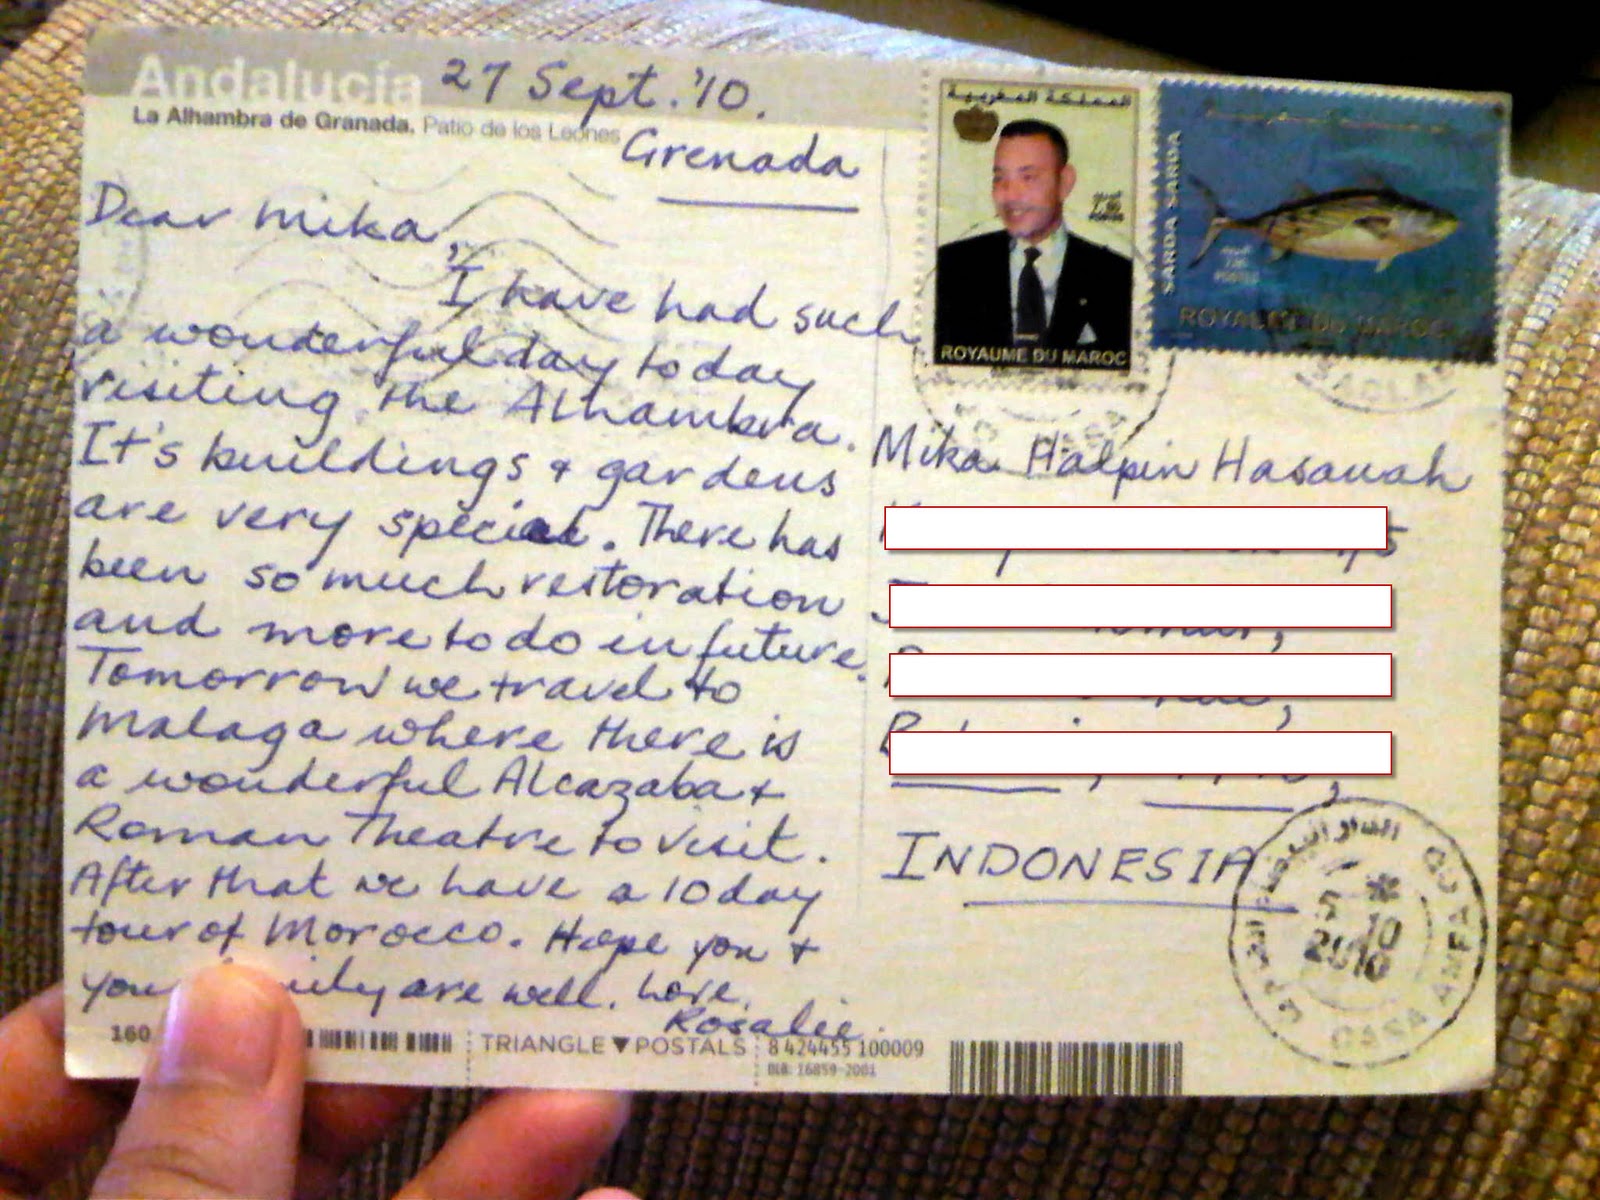 Andalucía
27 Sept. '10.
La Alhambra de Granada. Patio de los Leones
Grenada
Dear Mika,
I have had such
a wonderful day today
visiting the Alhambra.
It's buildings & gardens
are very special. There has
been so much restoration
and more to do in future.
Tomorrow we travel to
Malaga where there is
a wonderful Alcazaba &
Roman Theatre to visit.
After that we have a 10 day
tour of Morocco. Hope you &
are well. Love,
Rosalie.
160
TRIANGLE▼POSTALS
8 424455 100009
DLB: 16859-2001
المملكة المغربية
ROYAUME DU MAROC
SARDA SARDA
ROYAUME DU MAROC
Mika Halpin Hasanah
INDONESIA
5 10
2010
CASA ANFA